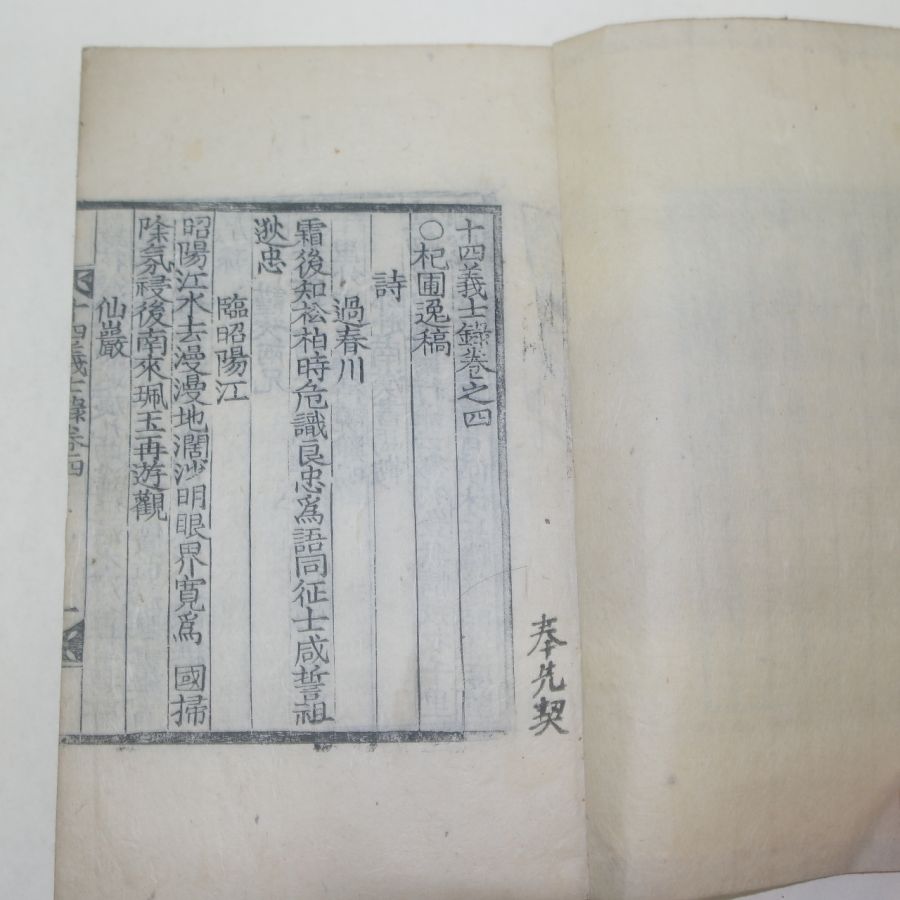 十四義士錄卷之四
○杞圃逸稿
詩
過春川
霜後知松柏時危識良忠爲語同征士咸誓祖
逖忠
臨昭陽江
昭陽江水去漫漫地濶沙明眼界寬爲 國掃
除氛祲後南來珮玉再遊觀
仙巖
十四義士錄卷四
一
奉先契